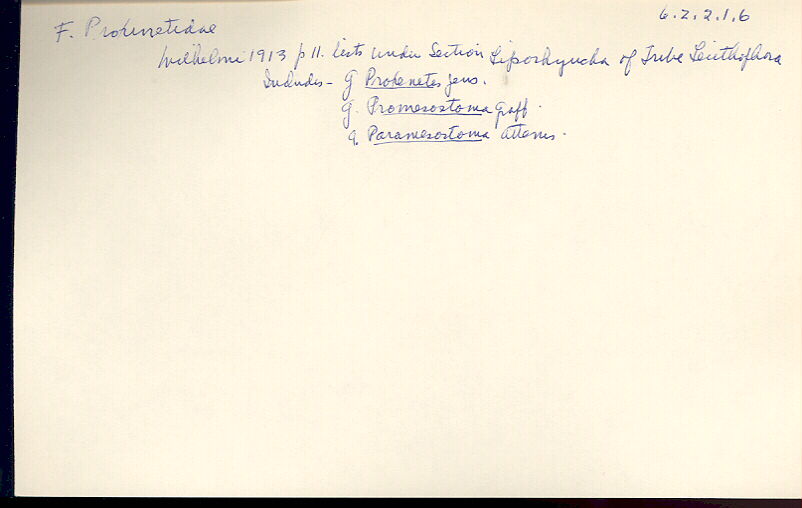 6.2.2.1.6
F. Proxenetidae
Wilhelmi 1913 p 11. lists under Section Liporhyncha of Tribe Lecithophora
Includes - g Proxenetes Jens.
g. Promesostoma Graff.
g. Paramesostoma Attems.